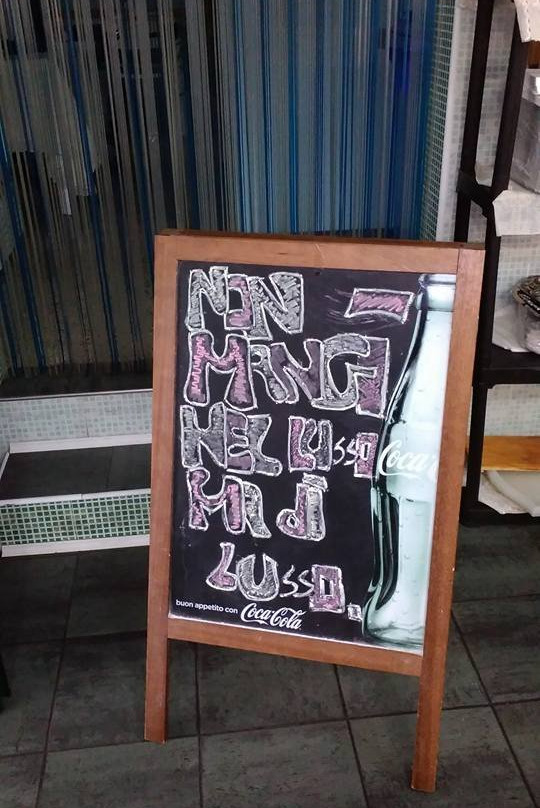 NON
MANGI
NEL LUSSO
MA di
LUSSO.
Coca
buon appetito con Coca-Cola